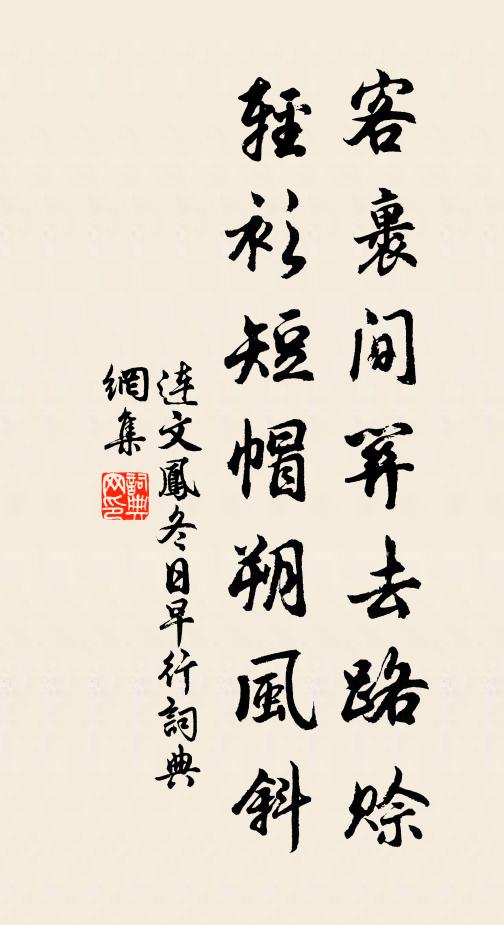 客裹間關去路賒
輕衫短帽朔風斜
連文鳳冬日早行詞典
網集
詞典網印